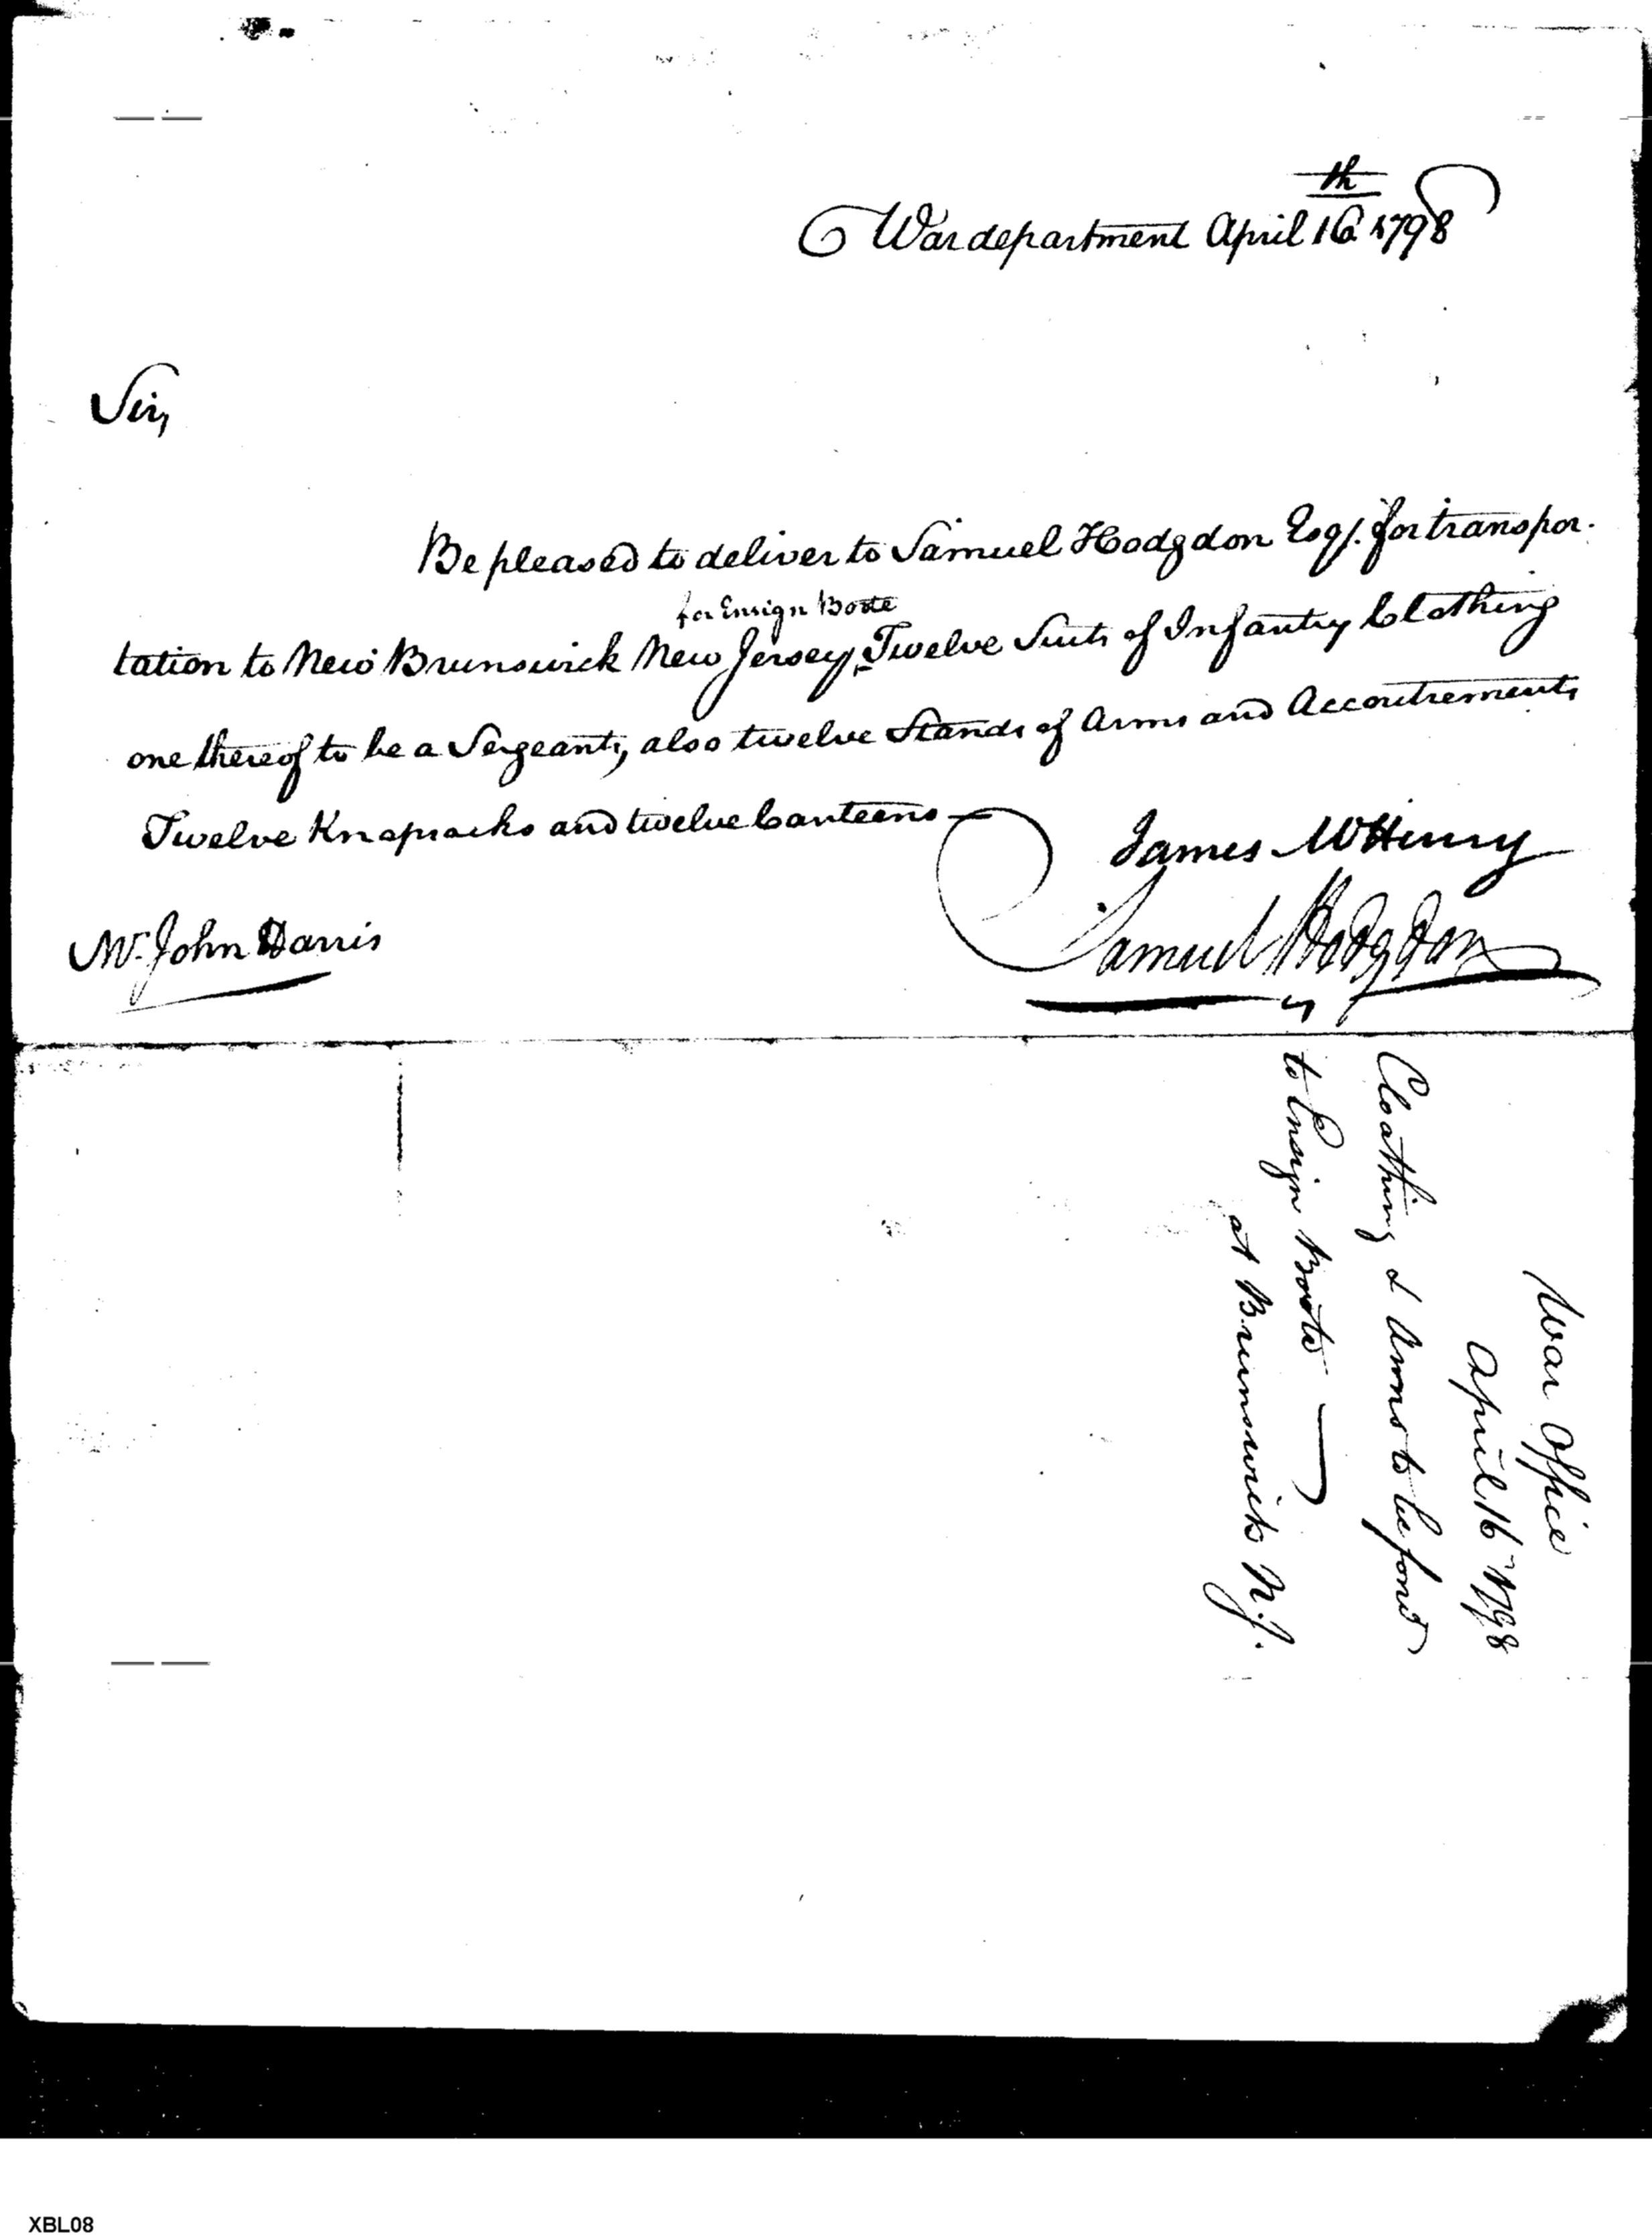 War department April 16th 1798
Sir,
Be pleased to deliver to Samuel Hodgdon Esqr. for transpor-
for Ensign Bootte
tation to New Brunswick New Jersey, Twelve Suits of Infantry Clothing
one thereof to be a Sergeants, also twelve Stands of Arms and Accoutrements
Twelve Knapsacks and twelve Canteens
James McHenry
Samuel Hodgdon
Mr. John Harris
War Office
April 16 1798
Cloathing & Arms to be ford
to Ensign Bootte
at Brunswick N.J.
XBL08